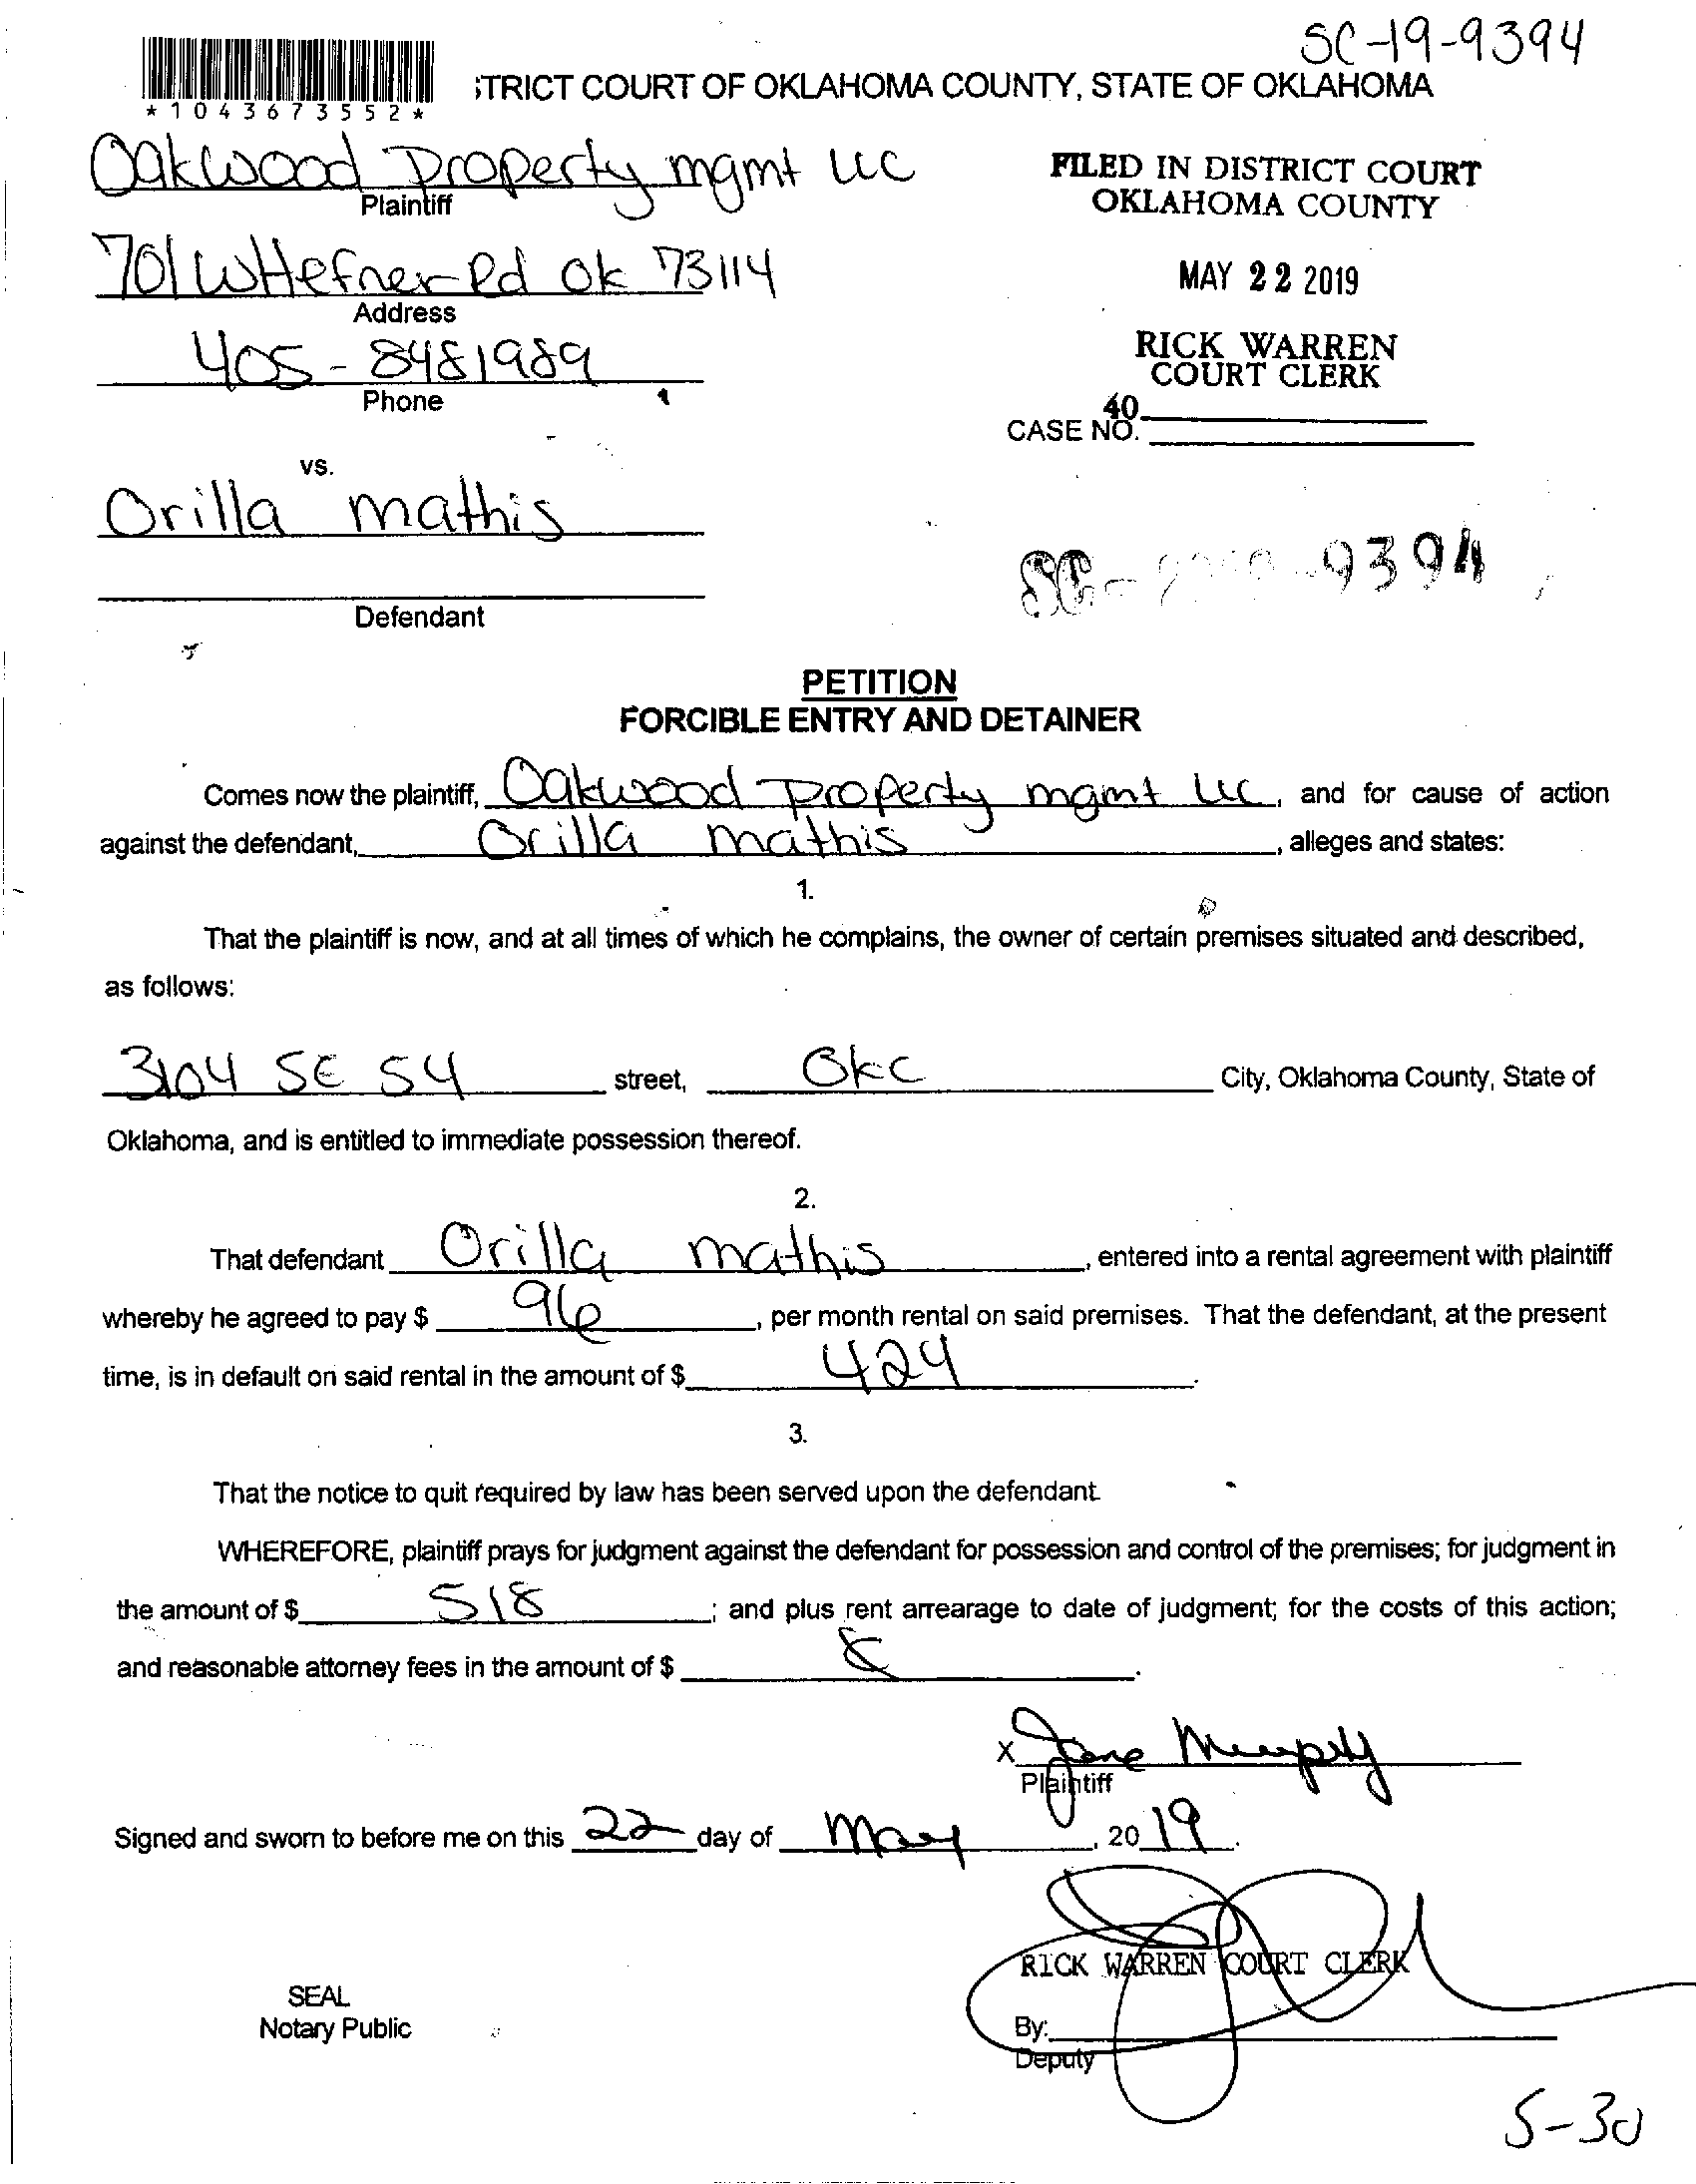 SC-19-9394
STRICT COURT OF OKLAHOMA COUNTY, STATE OF OKLAHOMA
*1043673552*
Oakwood Property mgmt LLC
Plaintiff
FILED IN DISTRICT COURT
OKLAHOMA COUNTY
701 W Hefner Rd Ok 73114
Address
MAY 22 2019
405-8481989
Phone
RICK WARREN
COURT CLERK
40
CASE NO.
vs.
Orilla mathis
Defendant
SC- -9394
PETITION
FORCIBLE ENTRY AND DETAINER
Comes now the plaintiff, Oakwood Property mgmt LLC, and for cause of action
against the defendant, Orilla mathis, alleges and states:
1.
That the plaintiff is now, and at all times of which he complains, the owner of certain premises situated and described,
as follows:
3104 SE 54 street, Okc City, Oklahoma County, State of
Oklahoma, and is entitled to immediate possession thereof.
2.
That defendant Orilla mathis, entered into a rental agreement with plaintiff
whereby he agreed to pay $ 96, per month rental on said premises. That the defendant, at the present
time, is in default on said rental in the amount of $ 424.
3.
That the notice to quit required by law has been served upon the defendant.
WHEREFORE, plaintiff prays for judgment against the defendant for possession and control of the premises; for judgment in
the amount of $ 518; and plus rent arrearage to date of judgment; for the costs of this action;
and reasonable attorney fees in the amount of $ .
x Jane Murphy
Plaintiff
Signed and sworn to before me on this 22 day of May, 2019.
RICK WARREN COURT CLERK
SEAL
Notary Public
By:
Deputy
5-30